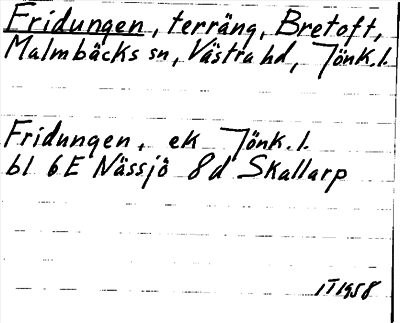 Fridungen, terräng, Bretoft,
Malmbäcks sn, Västra hd, Jönk. l.
Fridungen, ek Jönk. l.
bl 6E Nässjö 8d Skallarp
IT 1958